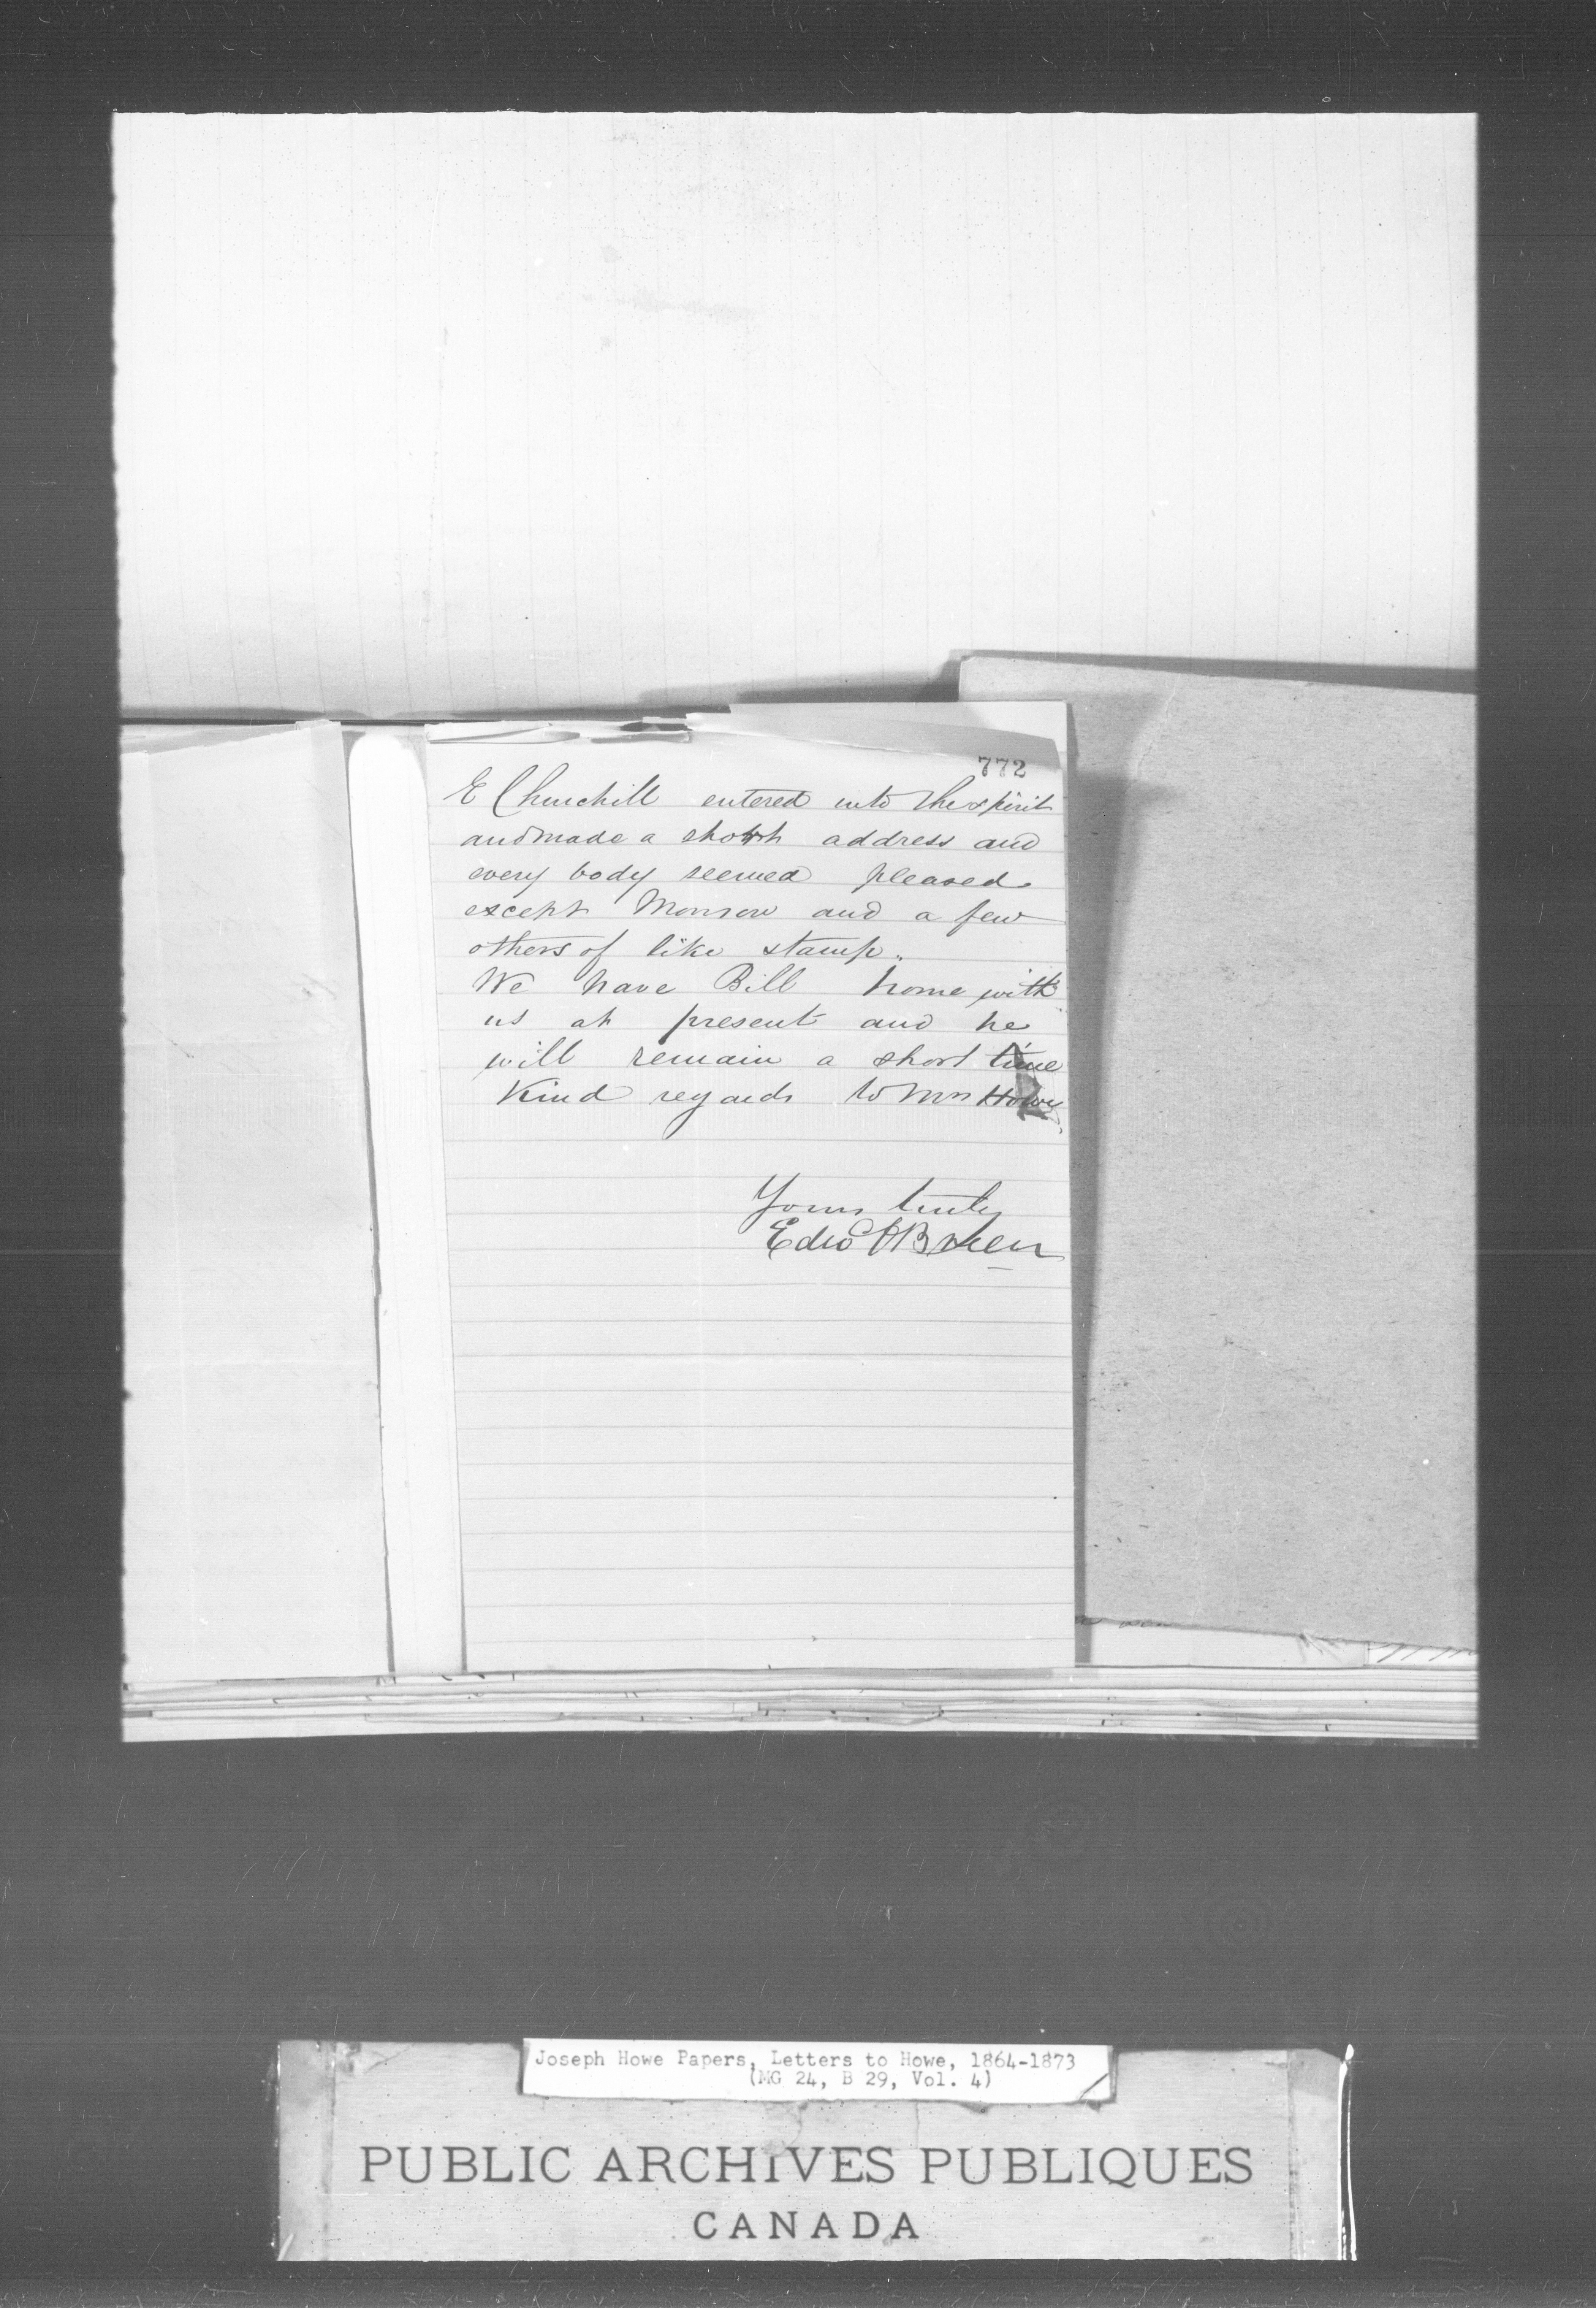 772
E Churchill entered into the spirit
and made a short address and
every body seemed pleased
except Monson and a few
others of like stamp.
We have Bill home with
us at present and he
will remain a short time
Kind regards to Mrs Howe
Yours truly
Edwd O'Brien
Joseph Howe Papers, Letters to Howe, 1864-1873
(MG 24, B 29, Vol. 4)
PUBLIC ARCHIVES PUBLIQUES
CANADA